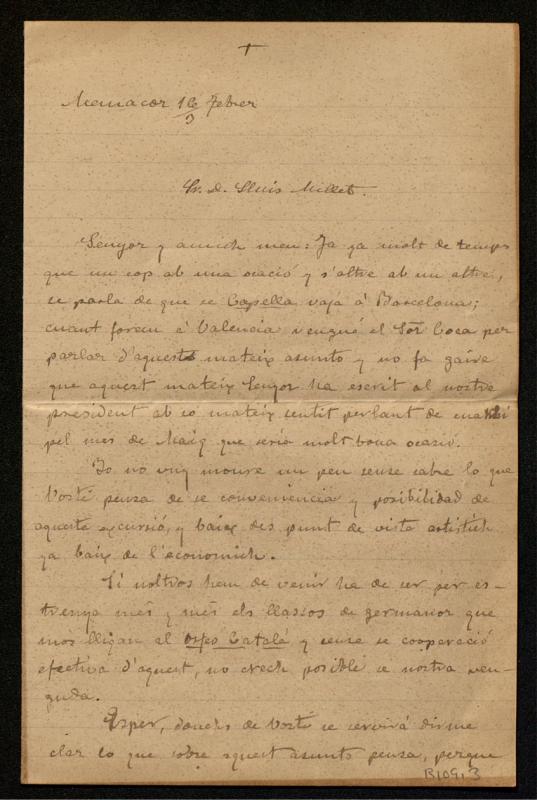 +
Manacor 16 Febrer
3
Sr. D. Lluis Millet.
Senyor y amich meu: Ja ya molt de temps
que un cop ab una ocació y s'altre ab un altre,
se parla de que se Capella vaja á Barcelona;
cuant forem á Valencia vengué el Sor Coca per
parlar d'aquest mateix asunto y no fa gaire
que aquest mateix Senyor ha escrit al nostre
president ab so mateix sentit parlant de
pel mes de Maig que seria molt bona ocasió.
Jo no vuy moure un peu sense sabre lo que
Vosté pensa de se conveniencia y posibilidad de
aquesta excursió, y baix des punt de vista artistich
ya baix de l'económich.
Si noltros hem de venir ha de ser per es-
trenye més y més els llassos de germanor que
mos lligan al Orfeó Catalá y sense se cooperació
efectiva d'aquest, no crech posible se nostra ven-
guda.
Esper, donchs de Vosté se servirá dirme
clar lo que sobre aquest asunto pensa, perque
B109,3